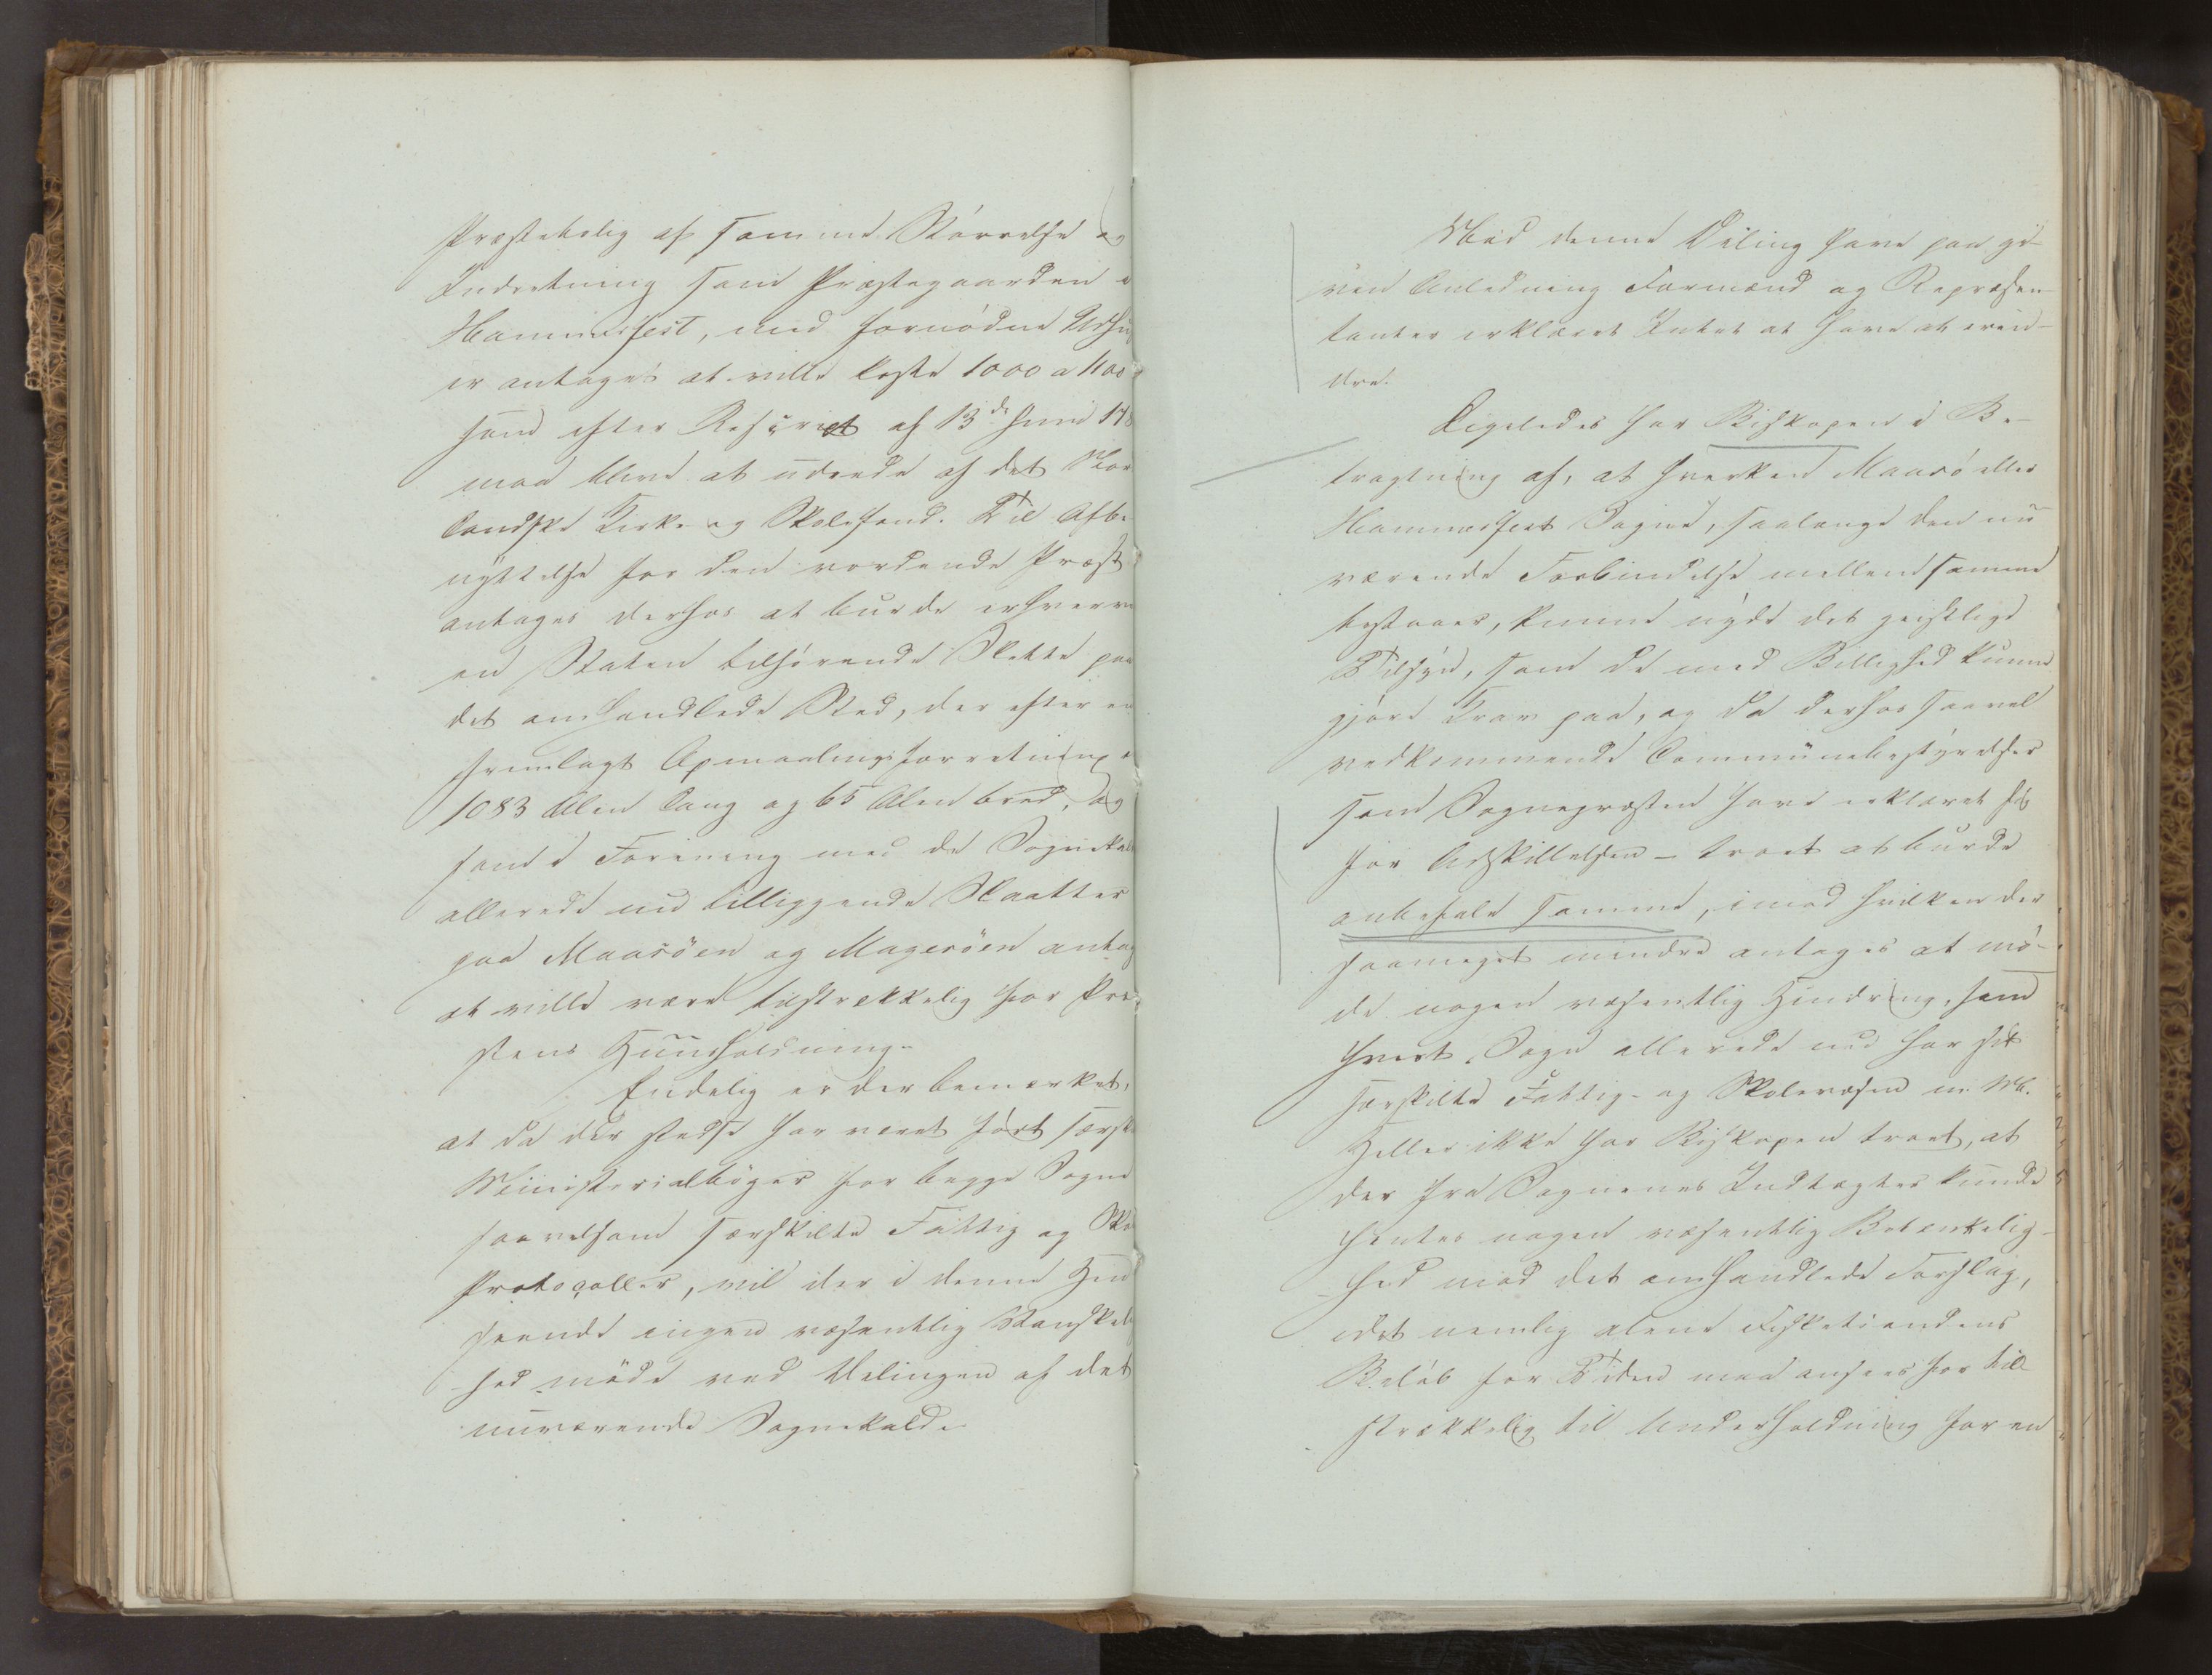 Præstebolig af samme Størrelse og
Indretning som Præstegaarden i
Hammerfest, med fornødne Udhu
er antaget at ville koste 1000 a 1100
som efter Rescript af 13de Juni 178
maa blive at udrede af det Nor
landske Kirke- og Skolefond. Til Afbe
nyttelse for den vordende Præst
antages derhos at burde erhverve
en Staten tilhørende Slette paa
det omhandlede Sted, der efter en
fremlagt Opmaalingsforretning er
1083 Alen lang og 65 Alen bred, og
som i Forening med de Sognekal
allerede nu tilliggende Slaatter
paa Maasöen og Mageröen antag
at ville være tilstrækkelig for Præ
stens Huusholdning.
Endelig er der bemærket,
at da der stedse har været ført særsk
Ministerialbøger for begge Sogne
saavelsom særskilte Fattig og Sko
Protocoller, vil der i denne Hen
seende ingen væsentlig Vanskelig
hed møde ved Delingen af det
nuværende Sognekald.
Mod denne Deling have paa gi-
ven Anledning Formænd og Repræsen-
tanter erklæret Intet at have at erin-
dre.
Ligeledes har Biskopen i Be-
tragtning af, at hverken Maasö eller
Hammerfest Sogne, saalænge den nu
værende Forbindelse mellem samme
bestaaer, kunne nyde det geistlige
Tilsyn, som de med Billighed kunne
gjøre Krav paa, og da derhos saavel
vedkommende Communebestyrelser
som Sognepræsten have erklæret sig
for Adskillelsen – troet at burde
anbefale samme, imod hvilken der
saameget mindre antages at mö-
de nogen væsentlig Hindring, som
hvert Sogn allerede nu har sit
særskilte Fattig- og Skolevæsen m. M.
Heller ikke har Biskopen troet, at
der fra Sognenes Indtægter kunde
hentes nogen væsentlig Betænkelig-
hed mod det omhandlede Forslag,
idet nemlig alene Fisketiendens
Beløb for Tiden maa ansees for til-
strækkelig til Underholdning for en